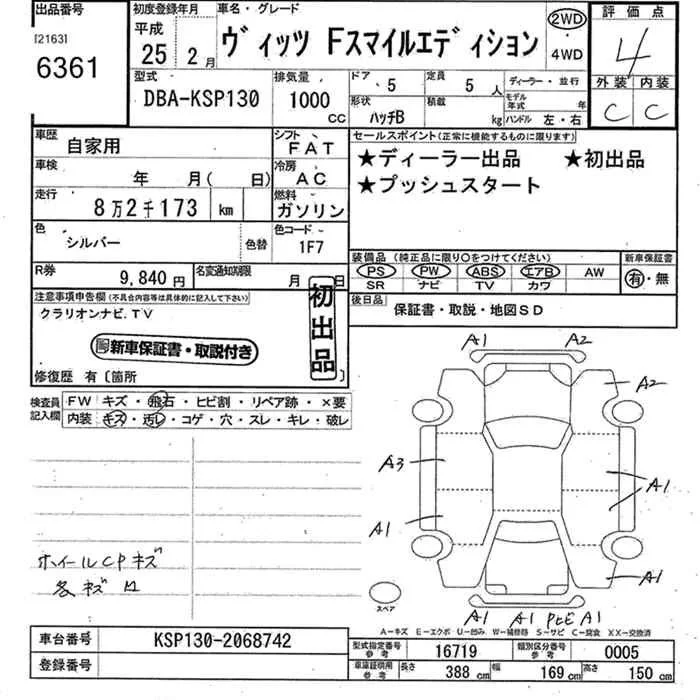 出品番号 初度登録年月 車名・グレード 評価点
[2163] 平成 ヴィッツ Fスマイルエディション 2WD・4WD 4
6361 25年 2月 外装 内装
型式 排気量 ドア 5 定員 5人 ディーラー・並行 C C
DBA-KSP130 1000cc 形状 ハッチB 積載 kg モデル年式 年 ハンドル 左・右
車歴 自家用 シフト FAT セールスポイント(正常に機能するものに限ります)
車検 年 月( 日) 冷房 AC ★ディーラー出品 ★初出品
★プッシュスタート
走行 8万2千173 km 燃料 ガソリン
色 シルバー 色替 色コード 1F7
装備品(純正品に限り○をつけてください) 新車保証書
PS PW ABS エアB AW 有・無
SR ナビ TV カワ
R券 9,840円 名変通知期限 月 日
後日品 保証書・取説・地図SD
注意事項申告欄(不具合内容等は具体的に記入して下さい) 初出品
クラリオンナビ.TV
新車保証書・取説付き
修復歴 有〔箇所
検査員記入欄 FW キズ・飛石・ヒビ割・リペア跡・×要
内装 キズ・汚レ・コゲ・穴・スレ・キレ・破レ
A1 A2
A2
A3
A1
A1
A1
ホイールCPキズ
各キズ
スペア
A1 A1 A1
A-キズ E-エクボ U-凹み W-補修跡 S-サビ C-腐食 XX-交換済
車台番号 KSP130-2068742
型式指定番号 参考 16719 類別区分番号 参考 0005
登録番号
車庫証明用 参考 長さ 388cm 幅 169cm 高さ 150cm